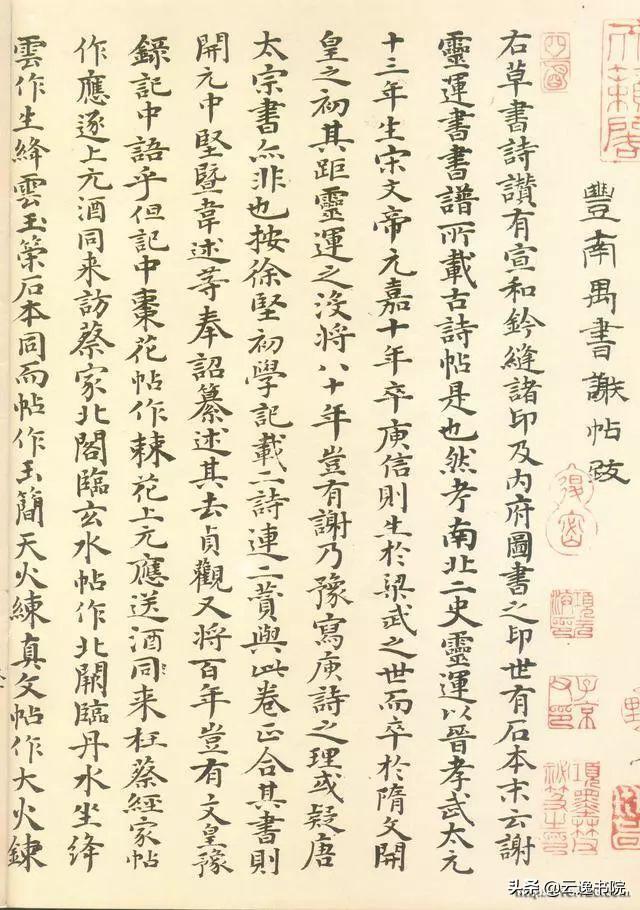 天籟閣
豐南禺書謝帖跋
項元汴印
子京父印
項墨林父秘笈之印
右草書詩讚有宣和鈐縫諸印及內府圖書之印世有石本末云謝
靈運書書譜所載古詩帖是也然考南北二史靈運以晉孝武太元
十三年生宋文帝元嘉十年卒庾信則生於梁武之世而卒於隋文開
皇之初其距靈運之沒將八十年豈有謝乃豫寫庾詩之理或疑唐
太宗書亦非也按徐堅初學記載二詩連二賛與此卷正合其書則
開元中堅暨韋述等奉詔纂述其去貞觀又將百年豈有文皇豫
錄記中語乎但記中棗花帖作棘花上元應送酒同来枉蔡經家帖
作應逐上元酒同来訪蔡家北閣臨玄水帖作北闕臨丹水坐絳
雲作生絳雲玉策石本同而帖作玉簡天火練真文帖作大火鍊
头条@云逸书院